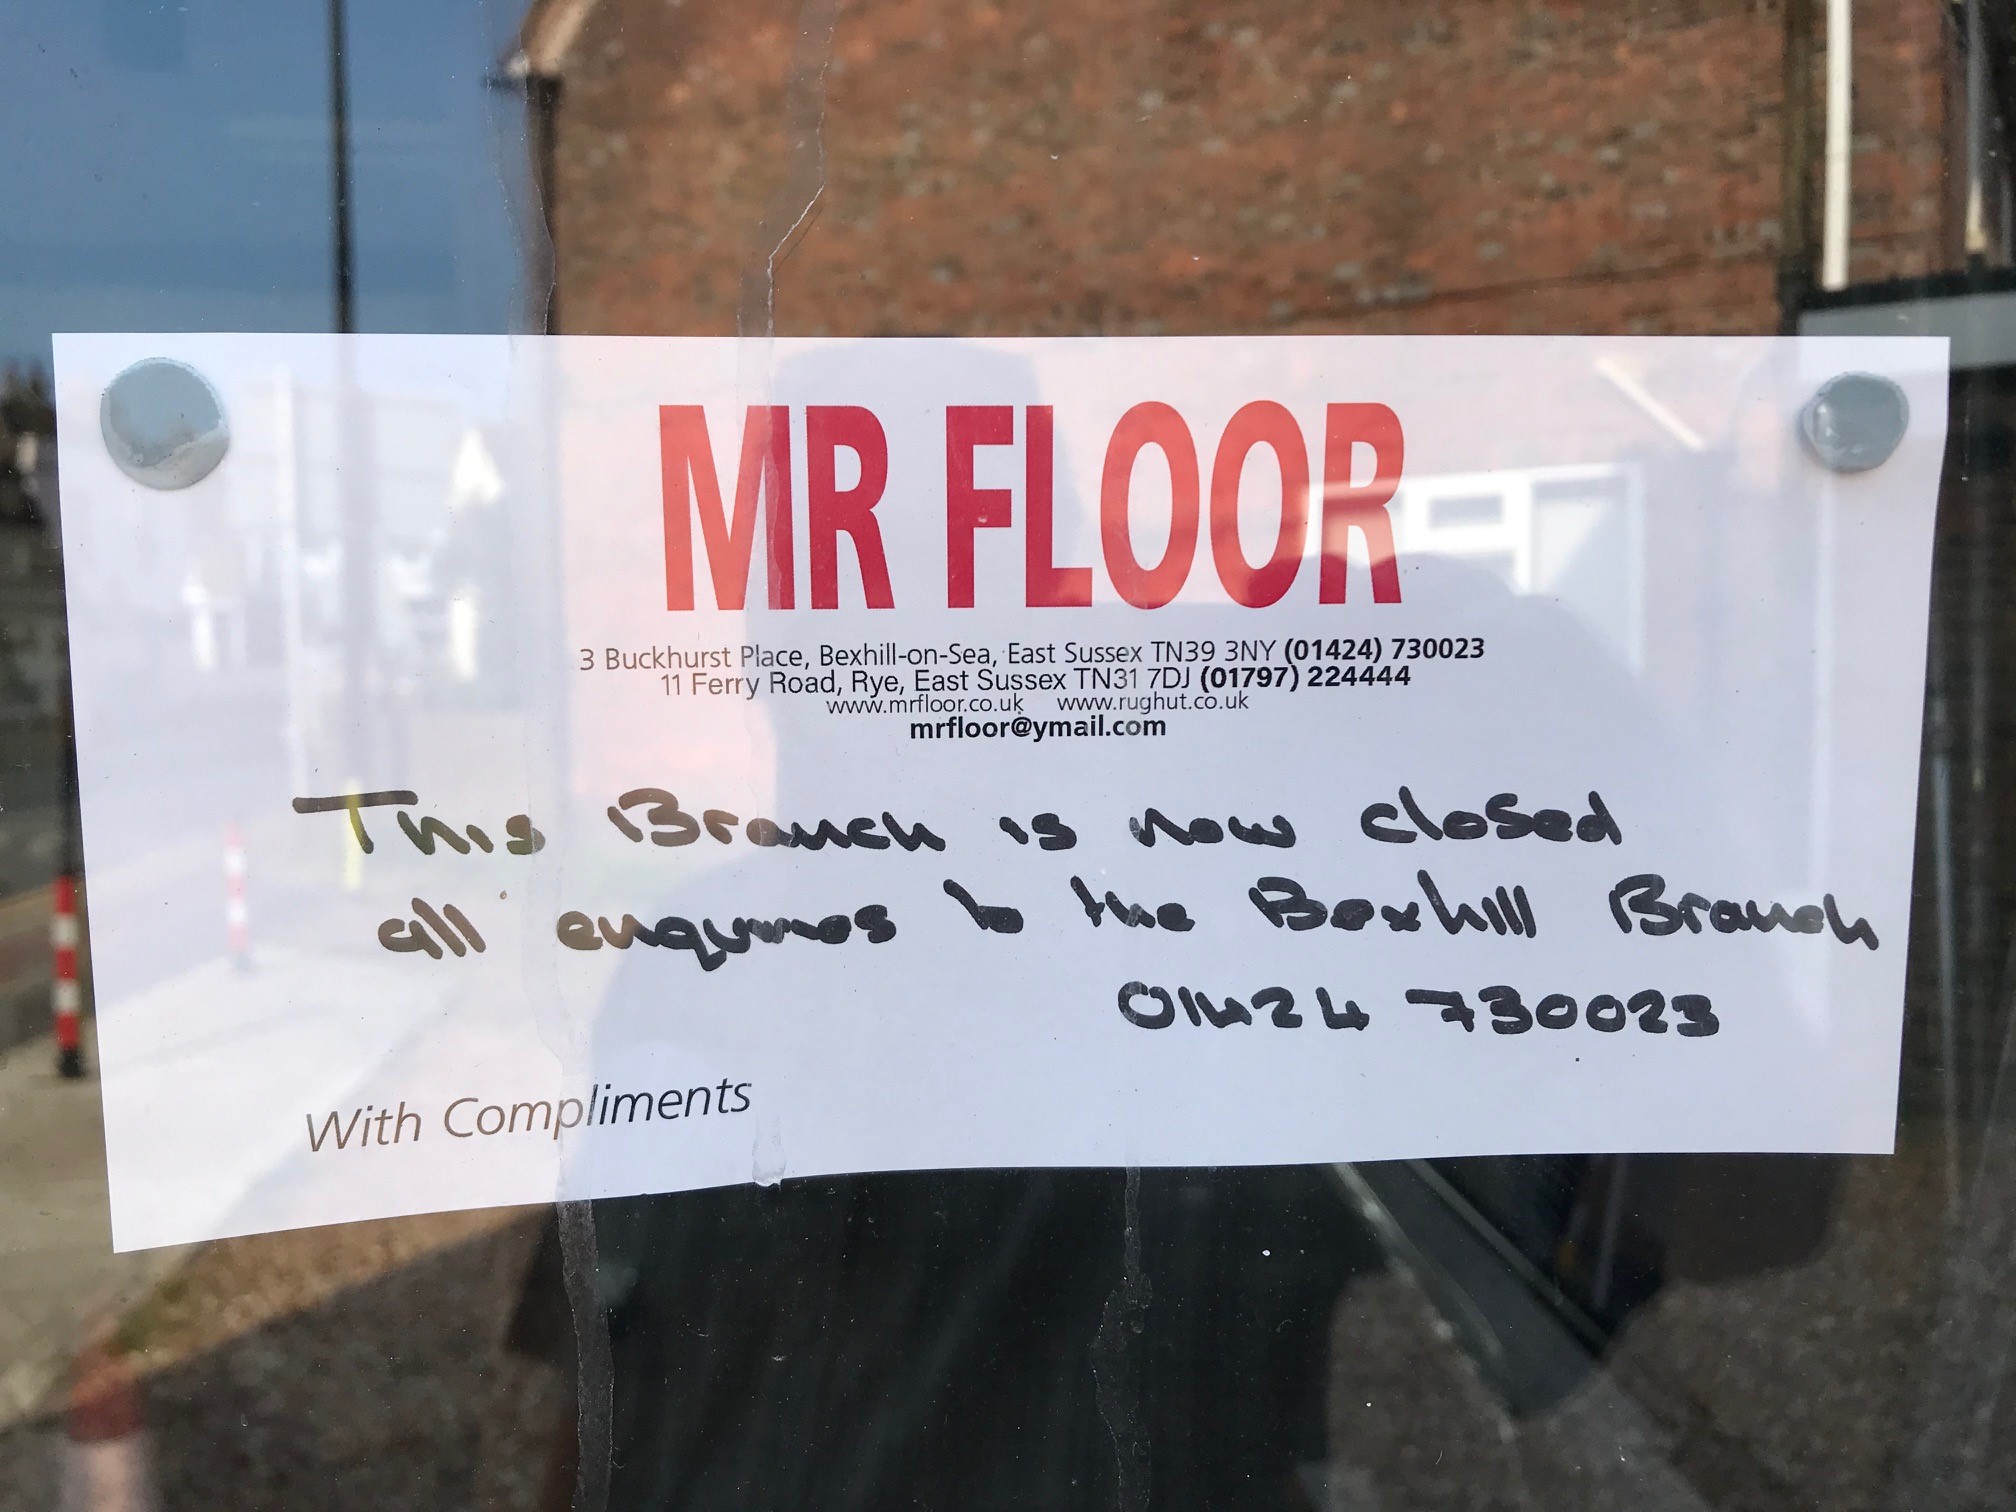 MR FLOOR
3 Buckhurst Place, Bexhill-on-Sea, East Sussex TN39 3NY (01424) 730023
11 Ferry Road, Rye, East Sussex TN31 7DJ (01797) 224444
www.mrfloor.co.uk www.rughut.co.uk
mrfloor@ymail.com
This Branch is now closed
all enquires to the Bexhill Branch
01424 730023
With Compliments